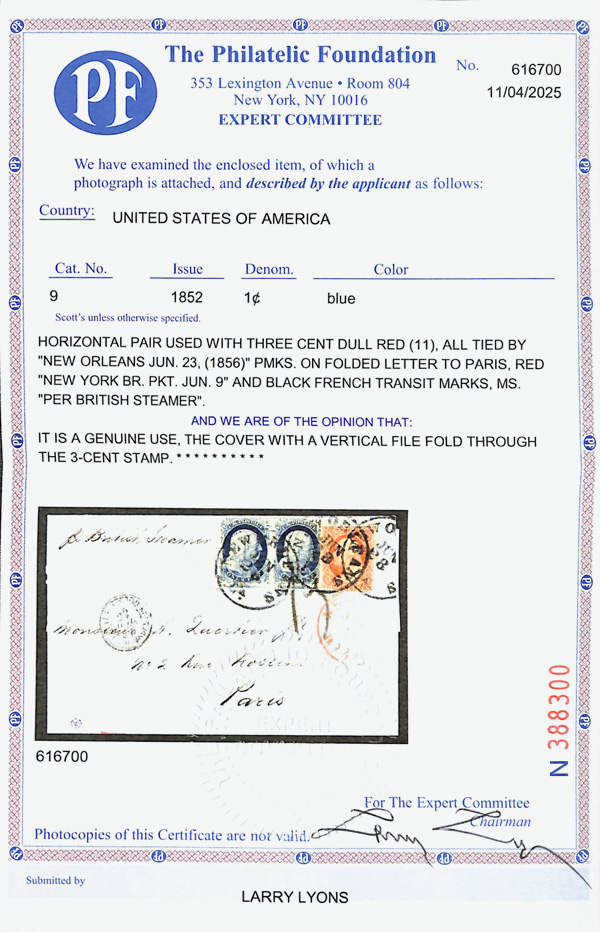 The Philatelic Foundation
353 Lexington Avenue • Room 804
New York, NY 10016
EXPERT COMMITTEE
PF
No. 616700
11/04/2025
We have examined the enclosed item, of which a
photograph is attached, and described by the applicant as follows:
Country: UNITED STATES OF AMERICA
Cat. No. Issue Denom. Color
9 1852 1¢ blue
Scott's unless otherwise specified.
HORIZONTAL PAIR USED WITH THREE CENT DULL RED (11), ALL TIED BY
"NEW ORLEANS JUN. 23, (1856)" PMKS. ON FOLDED LETTER TO PARIS, RED
"NEW YORK BR. PKT. JUN. 9" AND BLACK FRENCH TRANSIT MARKS, MS.
"PER BRITISH STEAMER".
AND WE ARE OF THE OPINION THAT:
IT IS A GENUINE USE, THE COVER WITH A VERTICAL FILE FOLD THROUGH
THE 3-CENT STAMP. * * * * * * * * * *
p. British Steamer
Monsieur
Paris
616700
N 388300
For The Expert Committee
Chairman
Photocopies of this Certificate are not valid.
Submitted by
LARRY LYONS